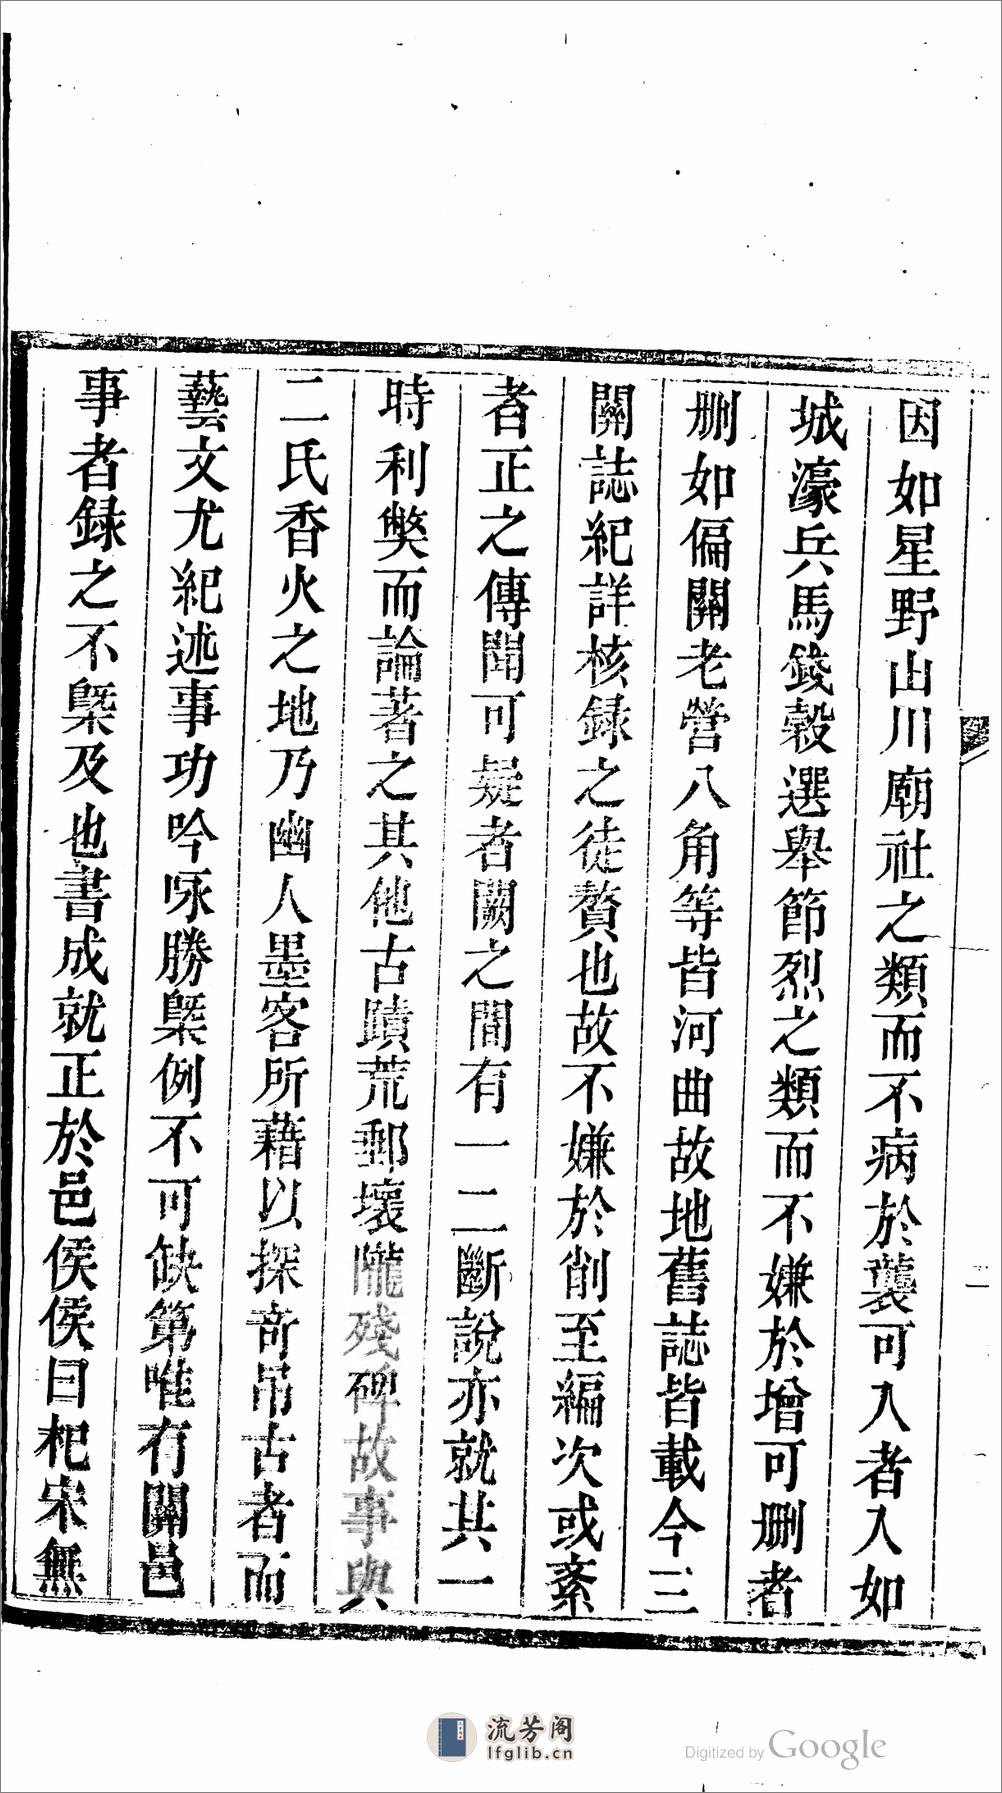 因如星野山川廟社之類而不病於襲可入者入如
城濠兵馬錢穀選舉節烈之類而不嫌於增可刪者
刪如偏關老營八角等皆河曲故地舊誌皆載今三
關誌紀詳核録之徒贅也故不嫌於削至編次或紊
者正之傳聞可疑者闕之間有一二斷說亦就其一
時利獘而論著之其他古蹟荒郵壞隴殘碑故事與
二氏香火之地乃幽人墨客所藉以探奇吊古者而
藝文尤紀述事功吟咏勝槩例不可缺第唯有關邑
事者録之不槩及也書成就正於邑侯侯曰杞宋無
流芳阁
lfglib.cn
Digitized by Google